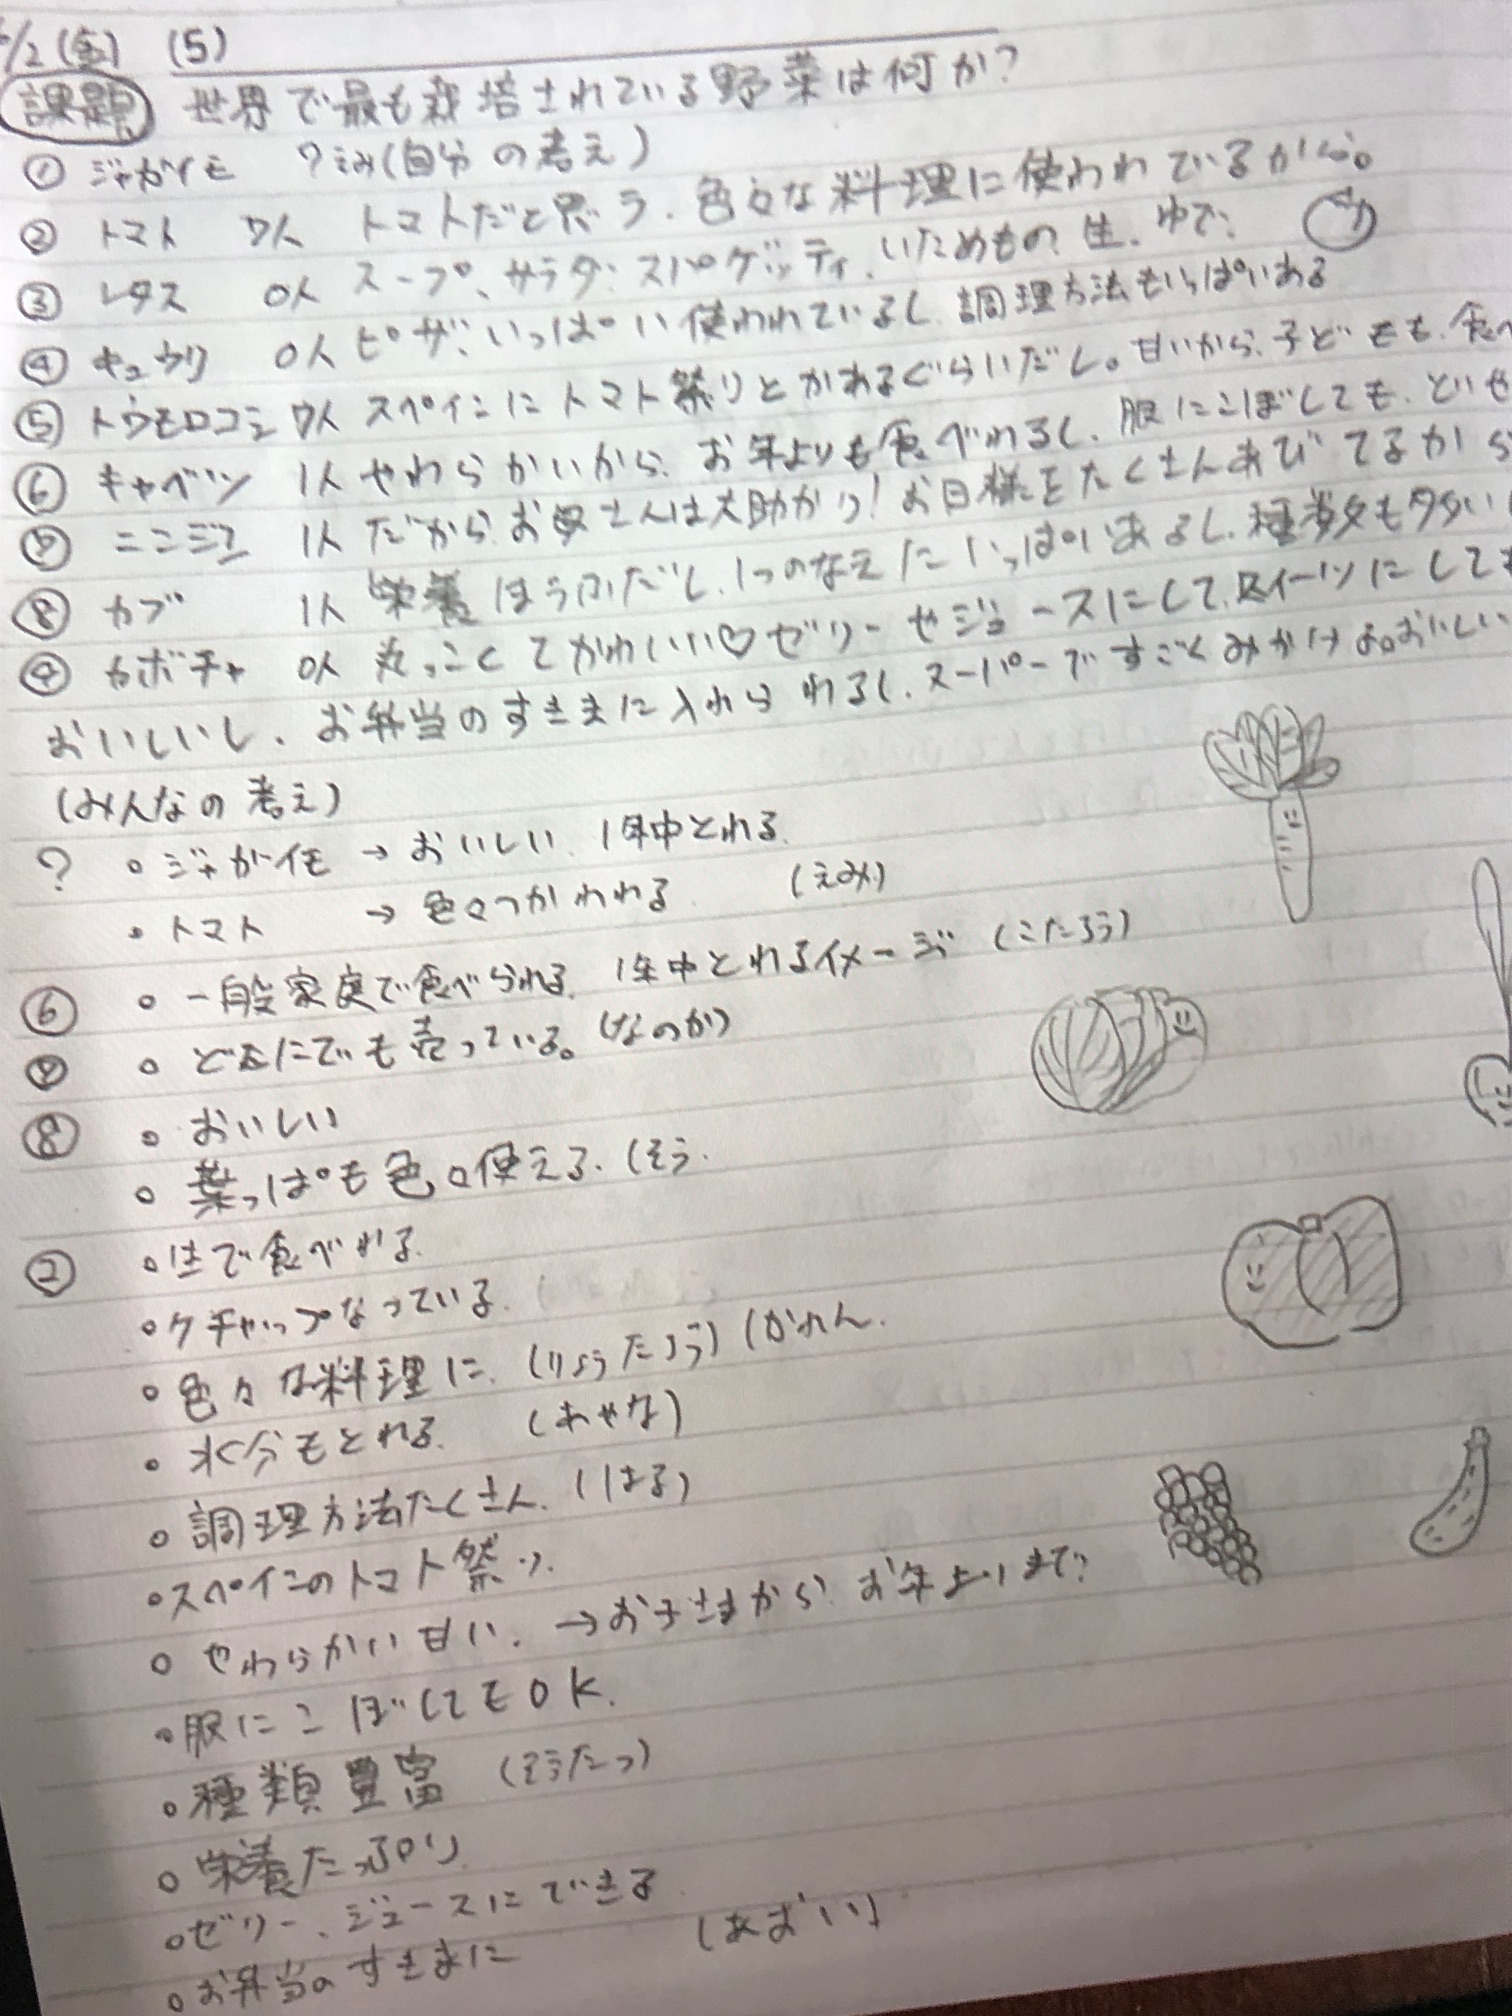 6/2(金) (5)
課題 世界で最も栽培されている野菜は何か?
① ジャガイモ ?えみ(自分の考え)
② トマト 7人 トマトだと思う。色々な料理に使われているから。
③ レタス 0人 スープ、サラダ、スパゲッティ、いためもの、生、ゆで、
④ キュウリ 0人 ピザ、いっぱい使われているし、調理方法もいっぱいある
⑤ トウモロコシ 7人 スペインにトマト祭りとかあるぐらいだし。甘いから、子どもも、食べ
⑥ キャベツ 1人 やわらかいから、お年よりも食べれるし、服にこぼしても、といせ
⑦ ニンジン 1人 だから、お母さんは大助かり!お日様をたくさんあびてるから
⑧ カブ 1人 栄養ほうふだし、1つのなえにいっぱいあるし、種数も多い
⑨ カボチャ 0人 丸っこくてかわいい♡ゼリーやジュースにして、スイーツにしても
おいしいし、お弁当のすきまに入れられるし、スーパーですごくみかけるよ。おいしい
(みんなの考え)
? 。ジャガイモ → おいしい、1年中とれる。
。トマト → 色々つかわれる (えみ)
⑥ 。一般家庭で食べられる。1年中とれるイメージ (こたろう)
⑦ 。どこにでも売っている。(なのか)
⑧ 。おいしい
。葉っぱも色々使える。(そう
② 。生で食べれる。
。ケチャップなっている。
。色々な料理に。(りょうたろう)(かれん.
。水分もとれる。 (あやな)
。調理方法たくさん。(はる)
。スペインのトマト祭り。
。やわらかい甘い。→お子さまから、お年よりまで。
。服にこぼしてもOK.
。種類豊富 (そうたっ)
。栄養たっぷり
。ゼリー、ジュースにできる
。お弁当のすきまに (あおい)